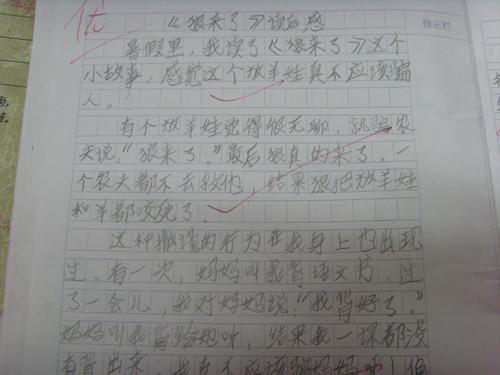 优
《狼来了》读后感
修正栏
暑假里，我读了《狼来了》这个
小故事，感觉这个放羊娃真不应该骗
人。
有个放羊娃觉得很无聊，就骗农
夫说：“狼来了。”最后狼真的来了，一
个农夫都不去救他，结果狼把放羊娃
和羊都咬死了。
这种撒谎的行为在我身上也出现
过。有一次，妈妈叫我背语文书，过
了一会儿，我对妈妈说：“我背好了。”
妈妈叫我背给她听，结果我一课都没
有背出来，我真不应该骗妈妈